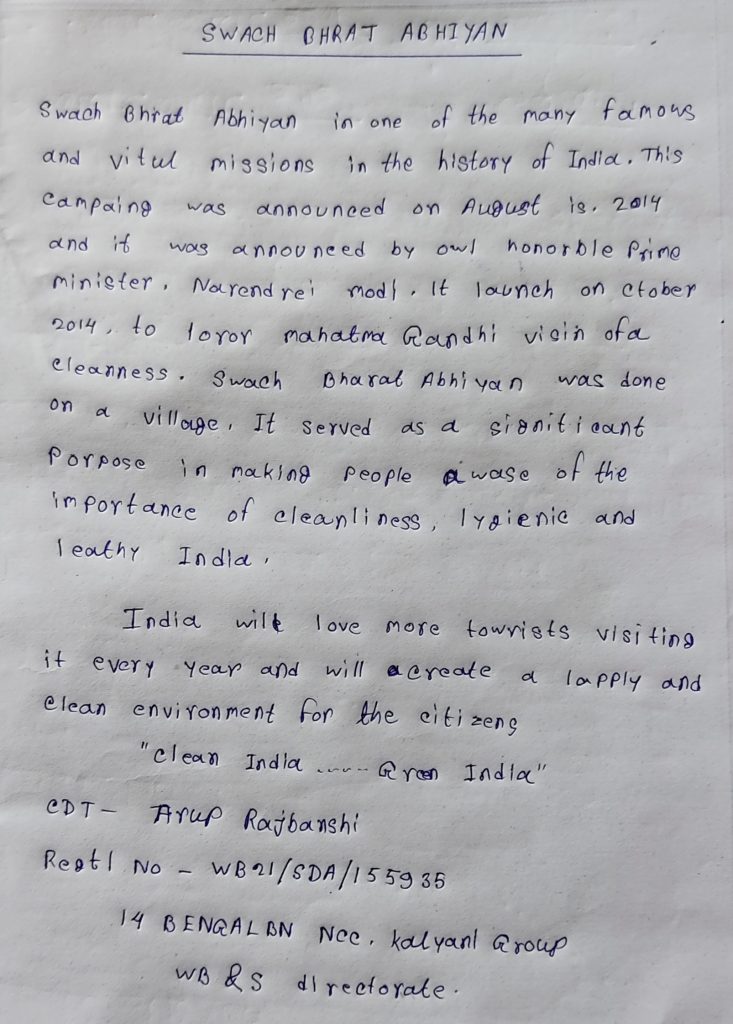 SWACH BHRAT ABHIYAN
Swach Bhrat Abhiyan in one of the many famous
and vitul missions in the history of India. This
Campaing was announced on August is. 2014
and it was announced by owl honorble Prime
minister, Narendrei modi. It launch on ctober
2014, to loror mahatma Gandhi visin of a
cleanness. Swach Bharat Abhiyan was done
on a village, It served as a significant
Porpose in making people awase of the
importance of cleanliness, lygienic and
leathy India.
India will love more towrists visiting
it every year and will acreate a lapply and
clean environment for the citizens
"clean India ...... Green India"
CDT - Arup Rajbanshi
Regtl No - WB21/SDA/155935
14 BENGAL BN NCC, kalyani Group
WB & S directorate.